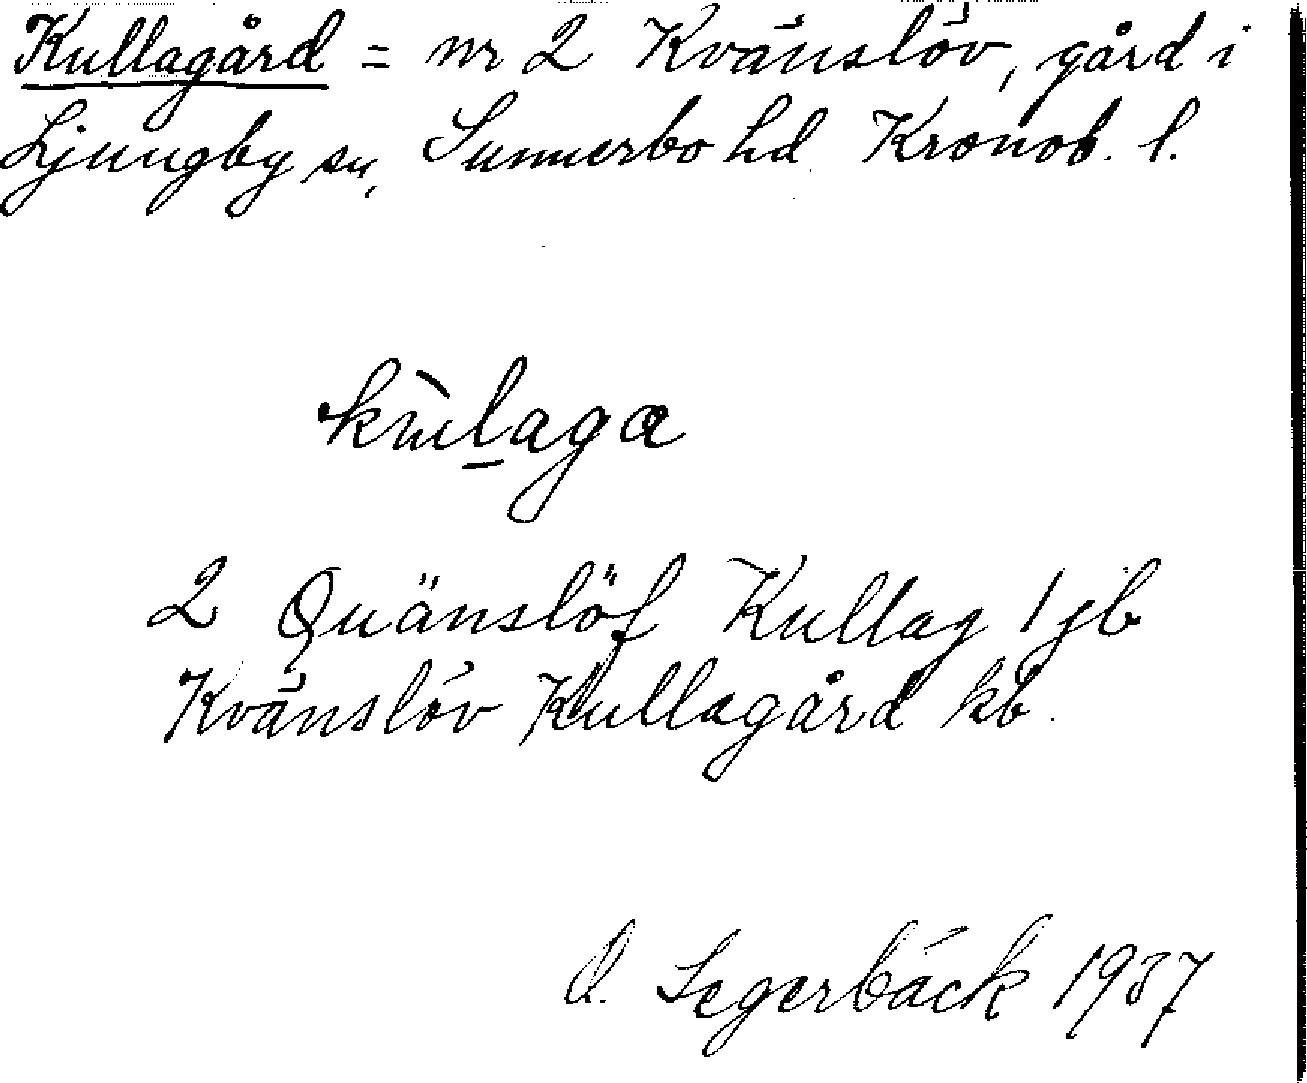 Kullagård = nr 2 Kvänslöv, gård i
Ljungby sn, Sunnerbo hd Kronob. l.
2 Quänslöf Kullag 1 jb
Kvänslöv Kullagård kb.
Segerbäck 1937